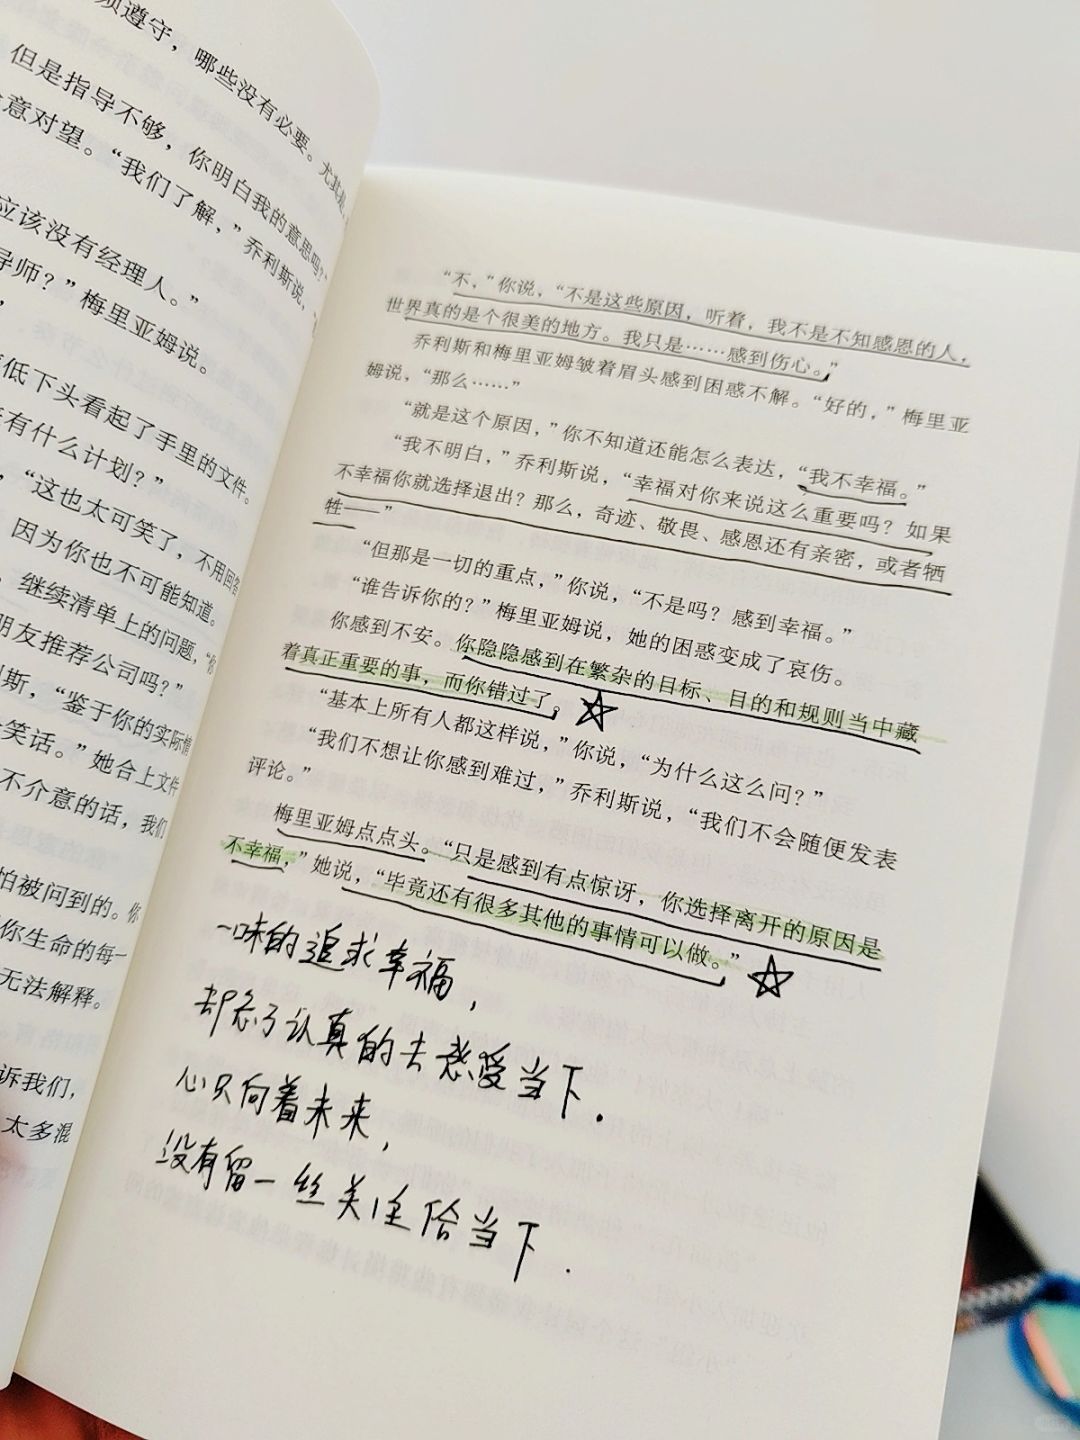 须遵守，哪些没有必要。尤其
但是指导不够，你明白我的意思吗？”
意对望。“我们了解，”乔利斯说，
应该没有经理人。”
导师？”梅里亚姆说。
低下头看起了手里的文件。
有什么计划？”
，“这也太可笑了，不用回答
因为你也不可能知道。
，继续清单上的问题，“你
朋友推荐公司吗？”
利斯，“鉴于你的实际情
笑话。”她合上文件
不介意的话，我们
怕被问到的。你
你生命的每一
无法解释。
诉我们，
太多混
“不，”你说，“不是这些原因，听着，我不是不知感恩的人，
世界真的是个很美的地方。我只是……感到伤心。”
乔利斯和梅里亚姆皱着眉头感到困惑不解。“好的，”梅里亚
姆说，“那么……”
“就是这个原因，”你不知道还能怎么表达，“我不幸福。”
“我不明白，”乔利斯说，“幸福对你来说这么重要吗？如果
不幸福你就选择退出？那么，奇迹、敬畏、感恩还有亲密，或者牺
牲——”
“但那是一切的重点，”你说，“不是吗？感到幸福。”
“谁告诉你的？”梅里亚姆说，她的困惑变成了哀伤。
你感到不安。你隐隐感到在繁杂的目标、目的和规则当中藏
着真正重要的事，而你错过了。
“基本上所有人都这样说，”你说，“为什么这么问？”
“我们不想让你感到难过，”乔利斯说，“我们不会随便发表
评论。”
梅里亚姆点点头。“只是感到有点惊讶，你选择离开的原因是
不幸福，”她说，“毕竟还有很多其他的事情可以做。”
一味的追求幸福，
却忘了认真的去恋爱当下.
心只向着未来，
没有留一丝关注给当下.